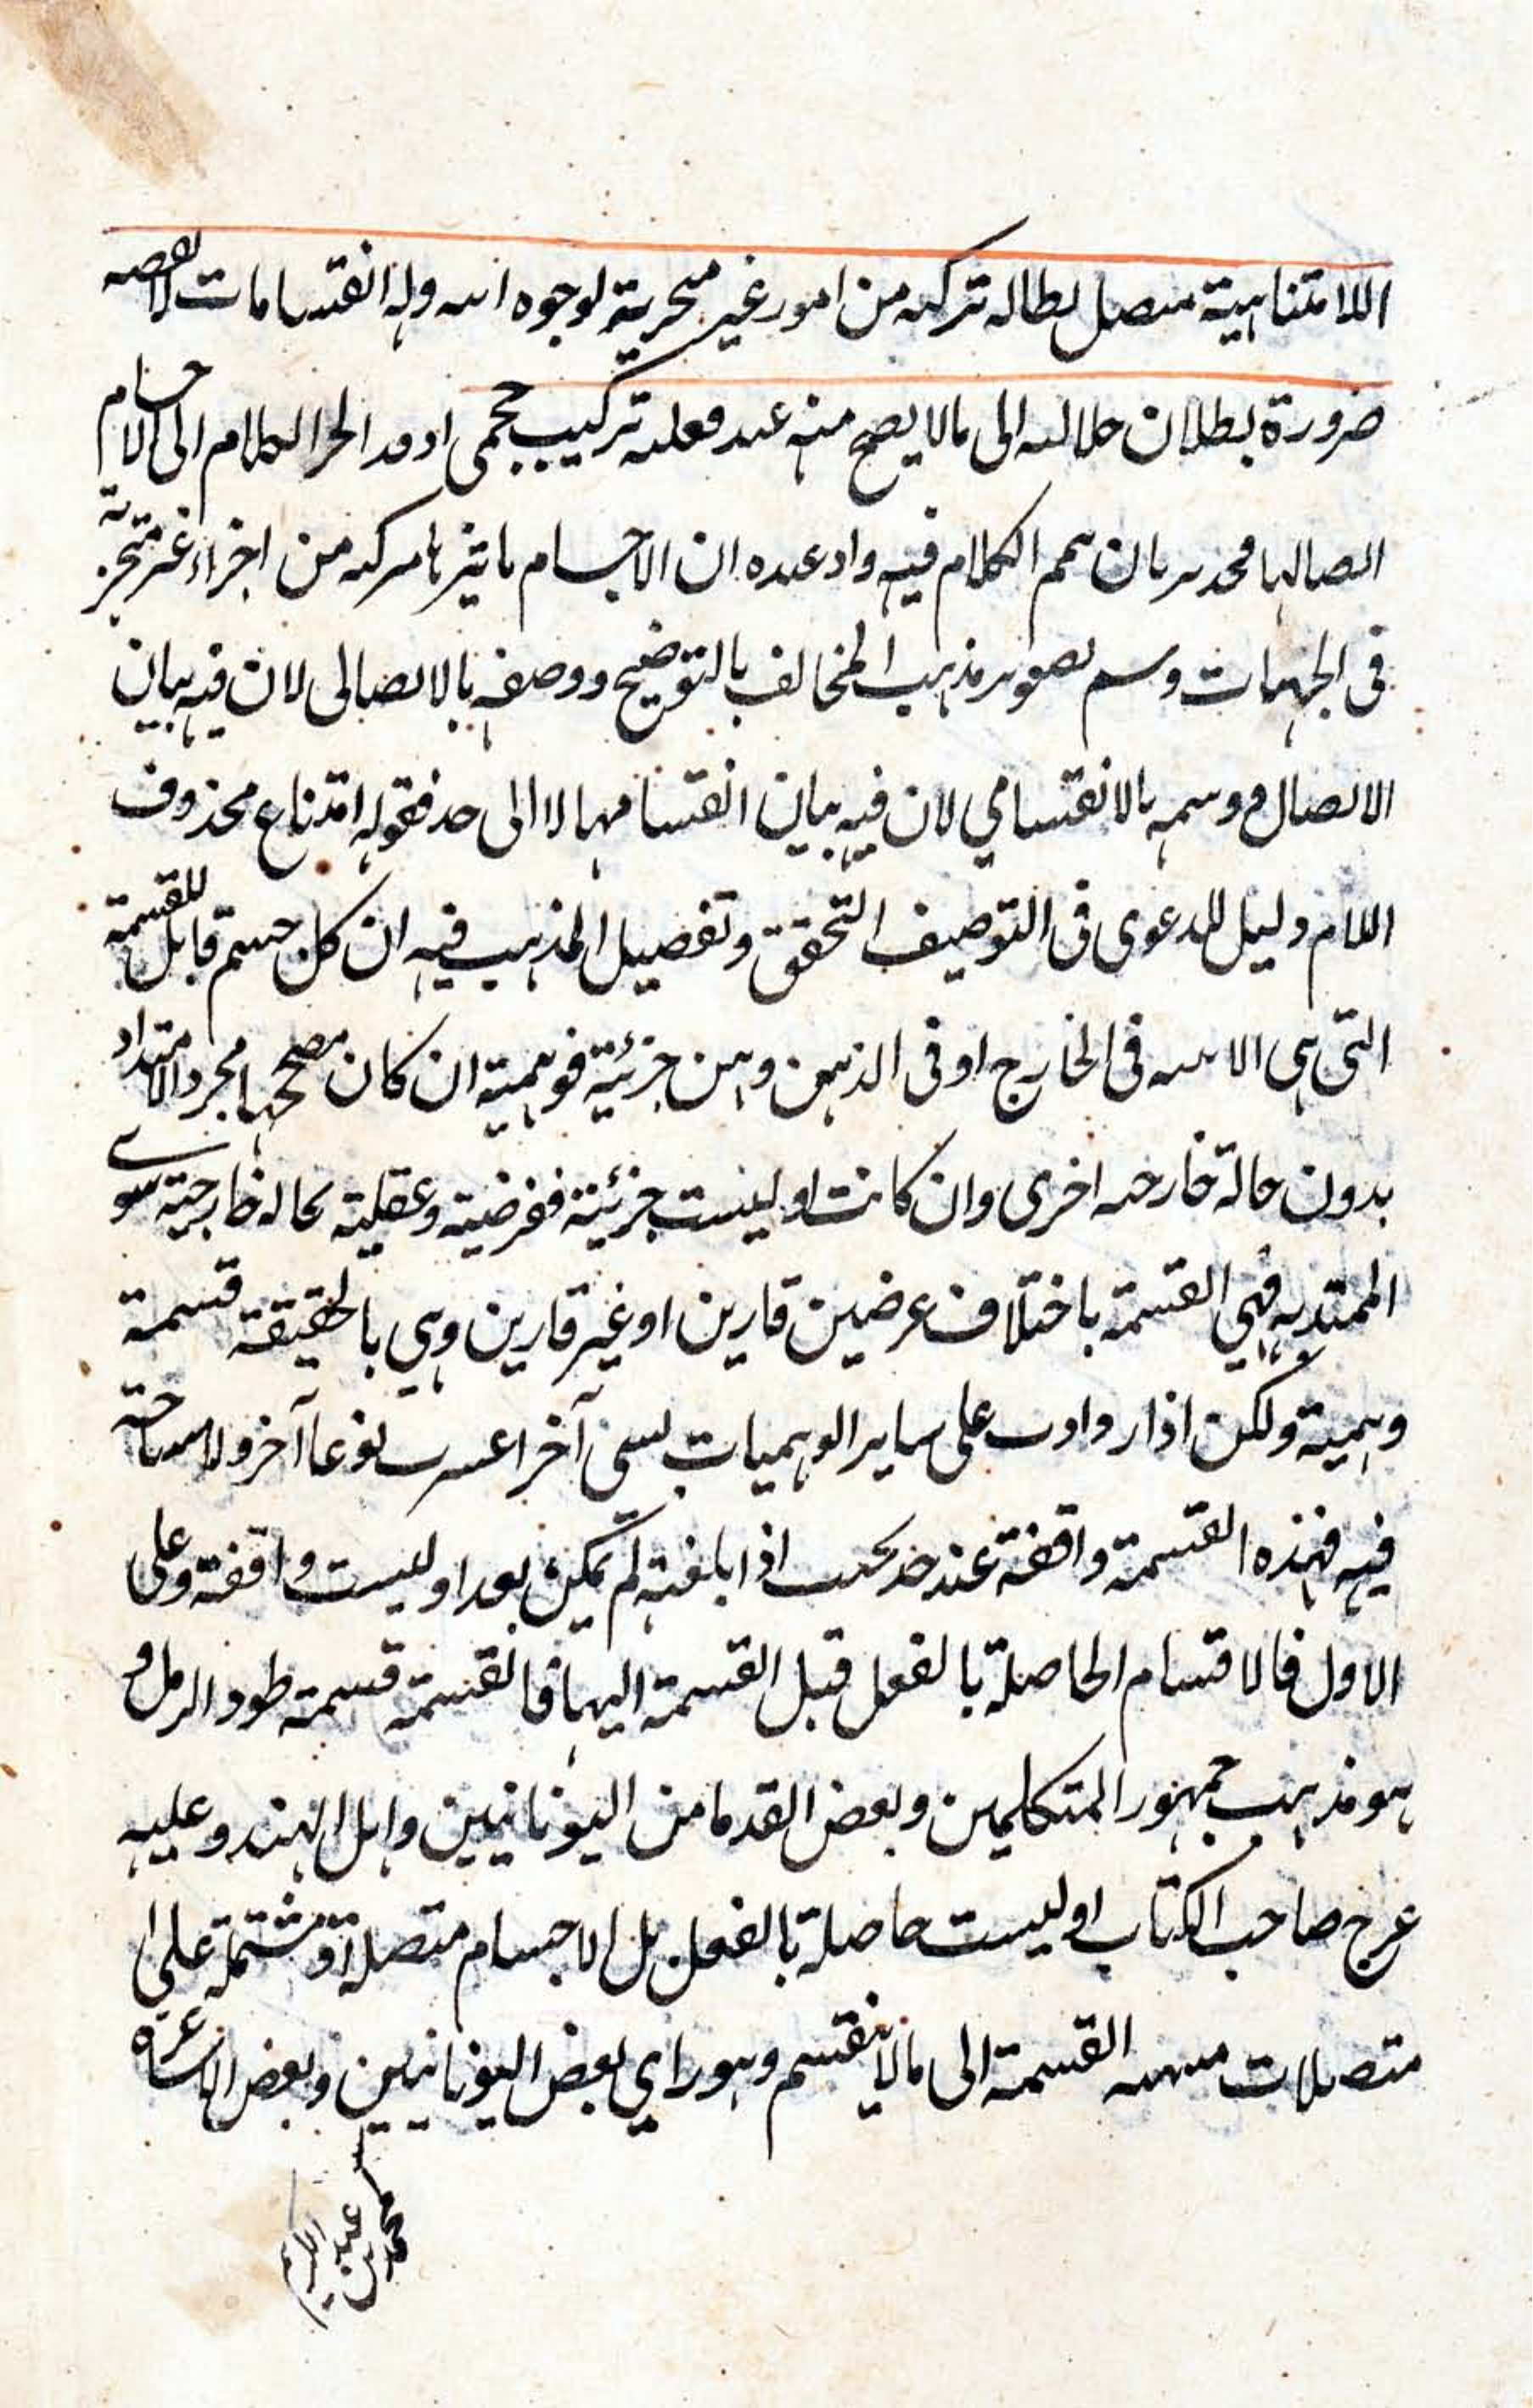 اللامتناهية متصل لطاله تركبه من امور غير متجزية لوجوه اسه وله انقسامات لا
ضرورة بطلان حلالىه الى مالا يصح منه عند فعله تركيب حجمى او الى الاجسام
ان الكلام فيه واد عنده ان الاجسام باثرها مركبه من اجزاء غير متجزية
فى الجهات وسم تصوير مذهب المخالف بالتوضيح ووصفه بالاتصالى لان فيه بيان
الاتصال ووسمه بالانقسامي لان فيه بيان انقسامهما لا الى حد فقوله امتناع محذوف
اللام دليل للدعوى فى التوصيف التحقق وتفصيل المذهب فيه ان كل جسم قابل للقسمة
التى هى فى الخارج او فى الذهن وهن جزئية فوهمية ان كان مصححها مجرد الامتداد
بدون حالة خارجه اخرى وان كانت او ليست جزئية ففرضية وعقلية بحاله خارجية سوى
الممتديه فهي القسمة باختلاف عرضين قارين او غير قارين وهي بالحقيقة قسمة
وهمية ولكن اذا على ساير الوهميات بسمى آخر نوعا آخر ولا مشاحة
فيه فهذه القسمة واقفة عند حد بحيث اذا بلغته لم يمكن بعد او ليست واقفة وعلى
الاول فالاقسام الحاصلة بالفعل قبل القسمة اليها فالقسمة قسمة طود الرمل و
هو مذهب جمهور المتكلمين وبعض القدما من اليونانيين واهل الهند وعليه
عرج صاحب الكتاب او ليست حاصلة بالفعل بل الاجسام متصلة او مشتملة على
متصلات القسمة الى مالا ينقسم وهو راي بعض اليونانيين وبعض الاشاعرة
محمد بن عبد